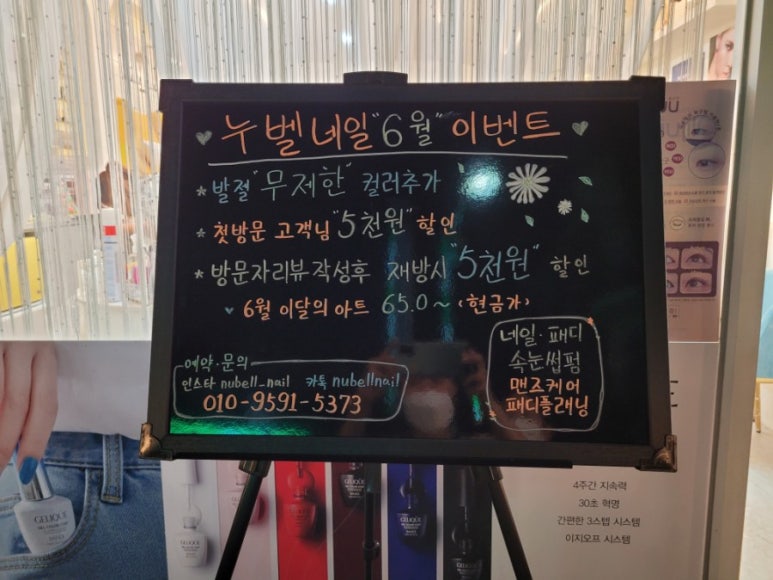 누벨네일 "6월" 이벤트
* 발젤 "무제한" 컬러추가
* 첫방문 고객님 "5천원" 할인
* 방문자리뷰작성후 재방시 "5천원" 할인
♥ 6월 이달의 아트 65.0~ (현금가)
예약·문의
인스타 nubell_nail 카톡 nubellnail
010-9591-5373
네일·패디
속눈썹펌
맨즈케어
패디플래닝
GELIQUE
GELIQUE
GELIQUE
GELIQUE
GELIQUE
4주간 지속력
30초 혁명
간편한 3스텝 시스템
이지오프 시스템